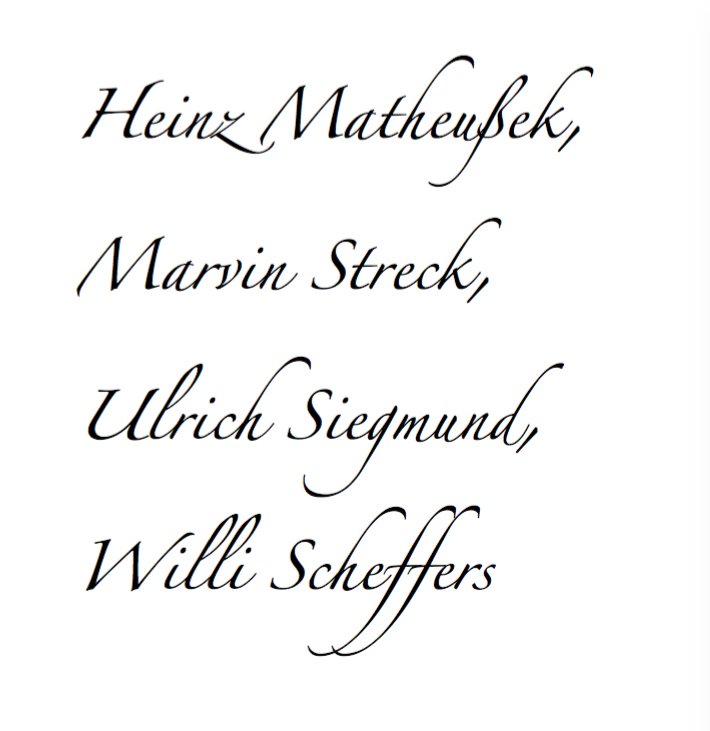 Heinz Matheußek,
Marvin Streck,
Ulrich Siegmund,
Willi Scheffers